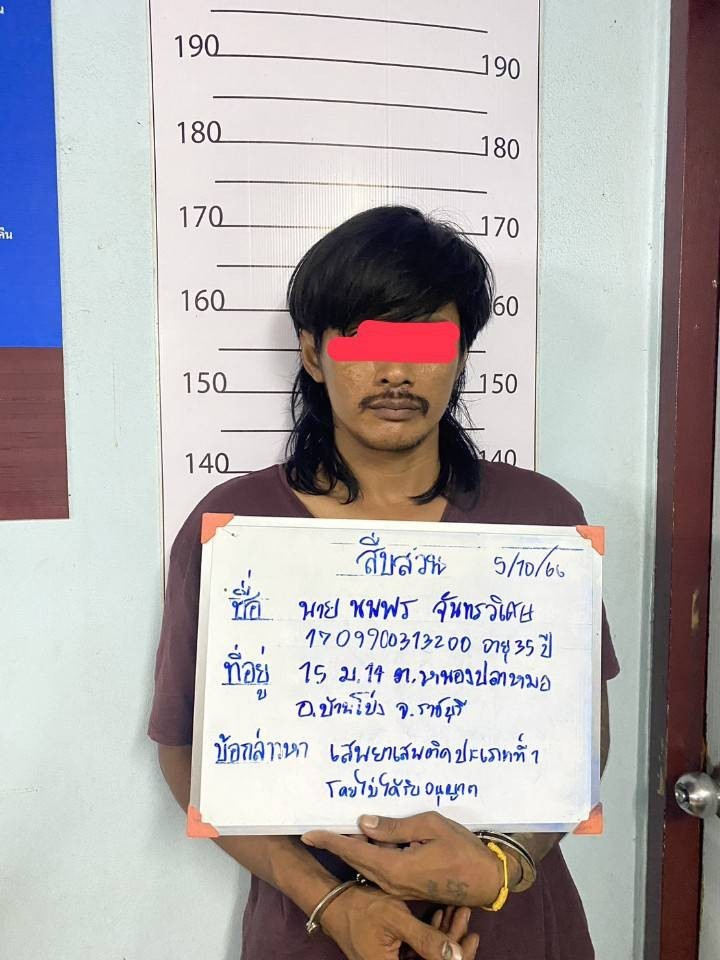 190 190
180 180
170 170
160 60
150 150
140 140
คืน
สืบสวน 5/10/66
ชื่อ นาย นพพร จันทรวิเศษ
1709900313200 อายุ 35 ปี
ที่อยู่ 15 ม.14 ต.หนองปลาหมอ
อ.บ้านโป่ง จ.ราชบุรี
ข้อกล่าวหา เสพยาเสพติดประเภทที่ 1
โดยไม่ได้รับอนุญาต